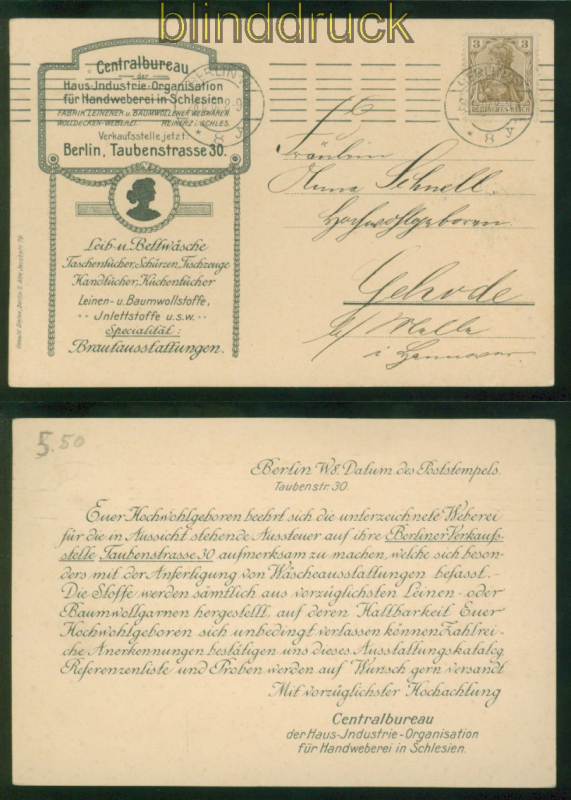 blinddruck
Centralbureau
der
Haus-Industrie-Organisation
für Handweberei in Schlesien
FABRIK LEINENER u. BAUMWOLLENER WEBWAREN
WOLLDECKEN-WEBEREI. REINERZ i. SCHLES.
Verkaufsstelle jetzt:
Berlin, Taubenstrasse 30.
Leib-u. Bettwäsche
Taschentücher, Schürzen, Tischzeuge
Handtücher, Küchentücher
Leinen- u. Baumwollstoffe,
Inlettstoffe u.s.w.
Specialität:
Brautausstattungen.
BERLIN
* 8
3 3
DEUTSCHES REICH
* 8
Fräulein
Anna Schnell.
Hochwohlgeboren.
Gehrde
b/ Melle
i Hannover.
5.50
Berlin W8. Datum des Poststempels.
Taubenstr. 30.
Euer Hochwohlgeboren beehrt sich die unterzeichnete Weberei
für die in Aussicht stehende Aussteuer auf ihre Berliner Verkaufs-
stelle Taubenstrasse 30 aufmerksam zu machen, welche sich beson-
ders mit der Anfertigung von Wäscheausstattungen befasst.
Die Stoffe werden sämtlich aus vorzüglichsten Leinen- oder
Baumwollgarnen hergestellt, auf deren Haltbarkeit Euer
Hochwohlgeboren sich unbedingt verlassen können. Zahlrei-
che Anerkennungen bestätigen uns dieses. Ausstattungskatalog
Referenzenliste und Proben werden auf Wunsch gern versandt
Mit vorzüglichster Hochachtung
Centralbureau
der Haus-Industrie-Organisation
für Handweberei in Schlesien.